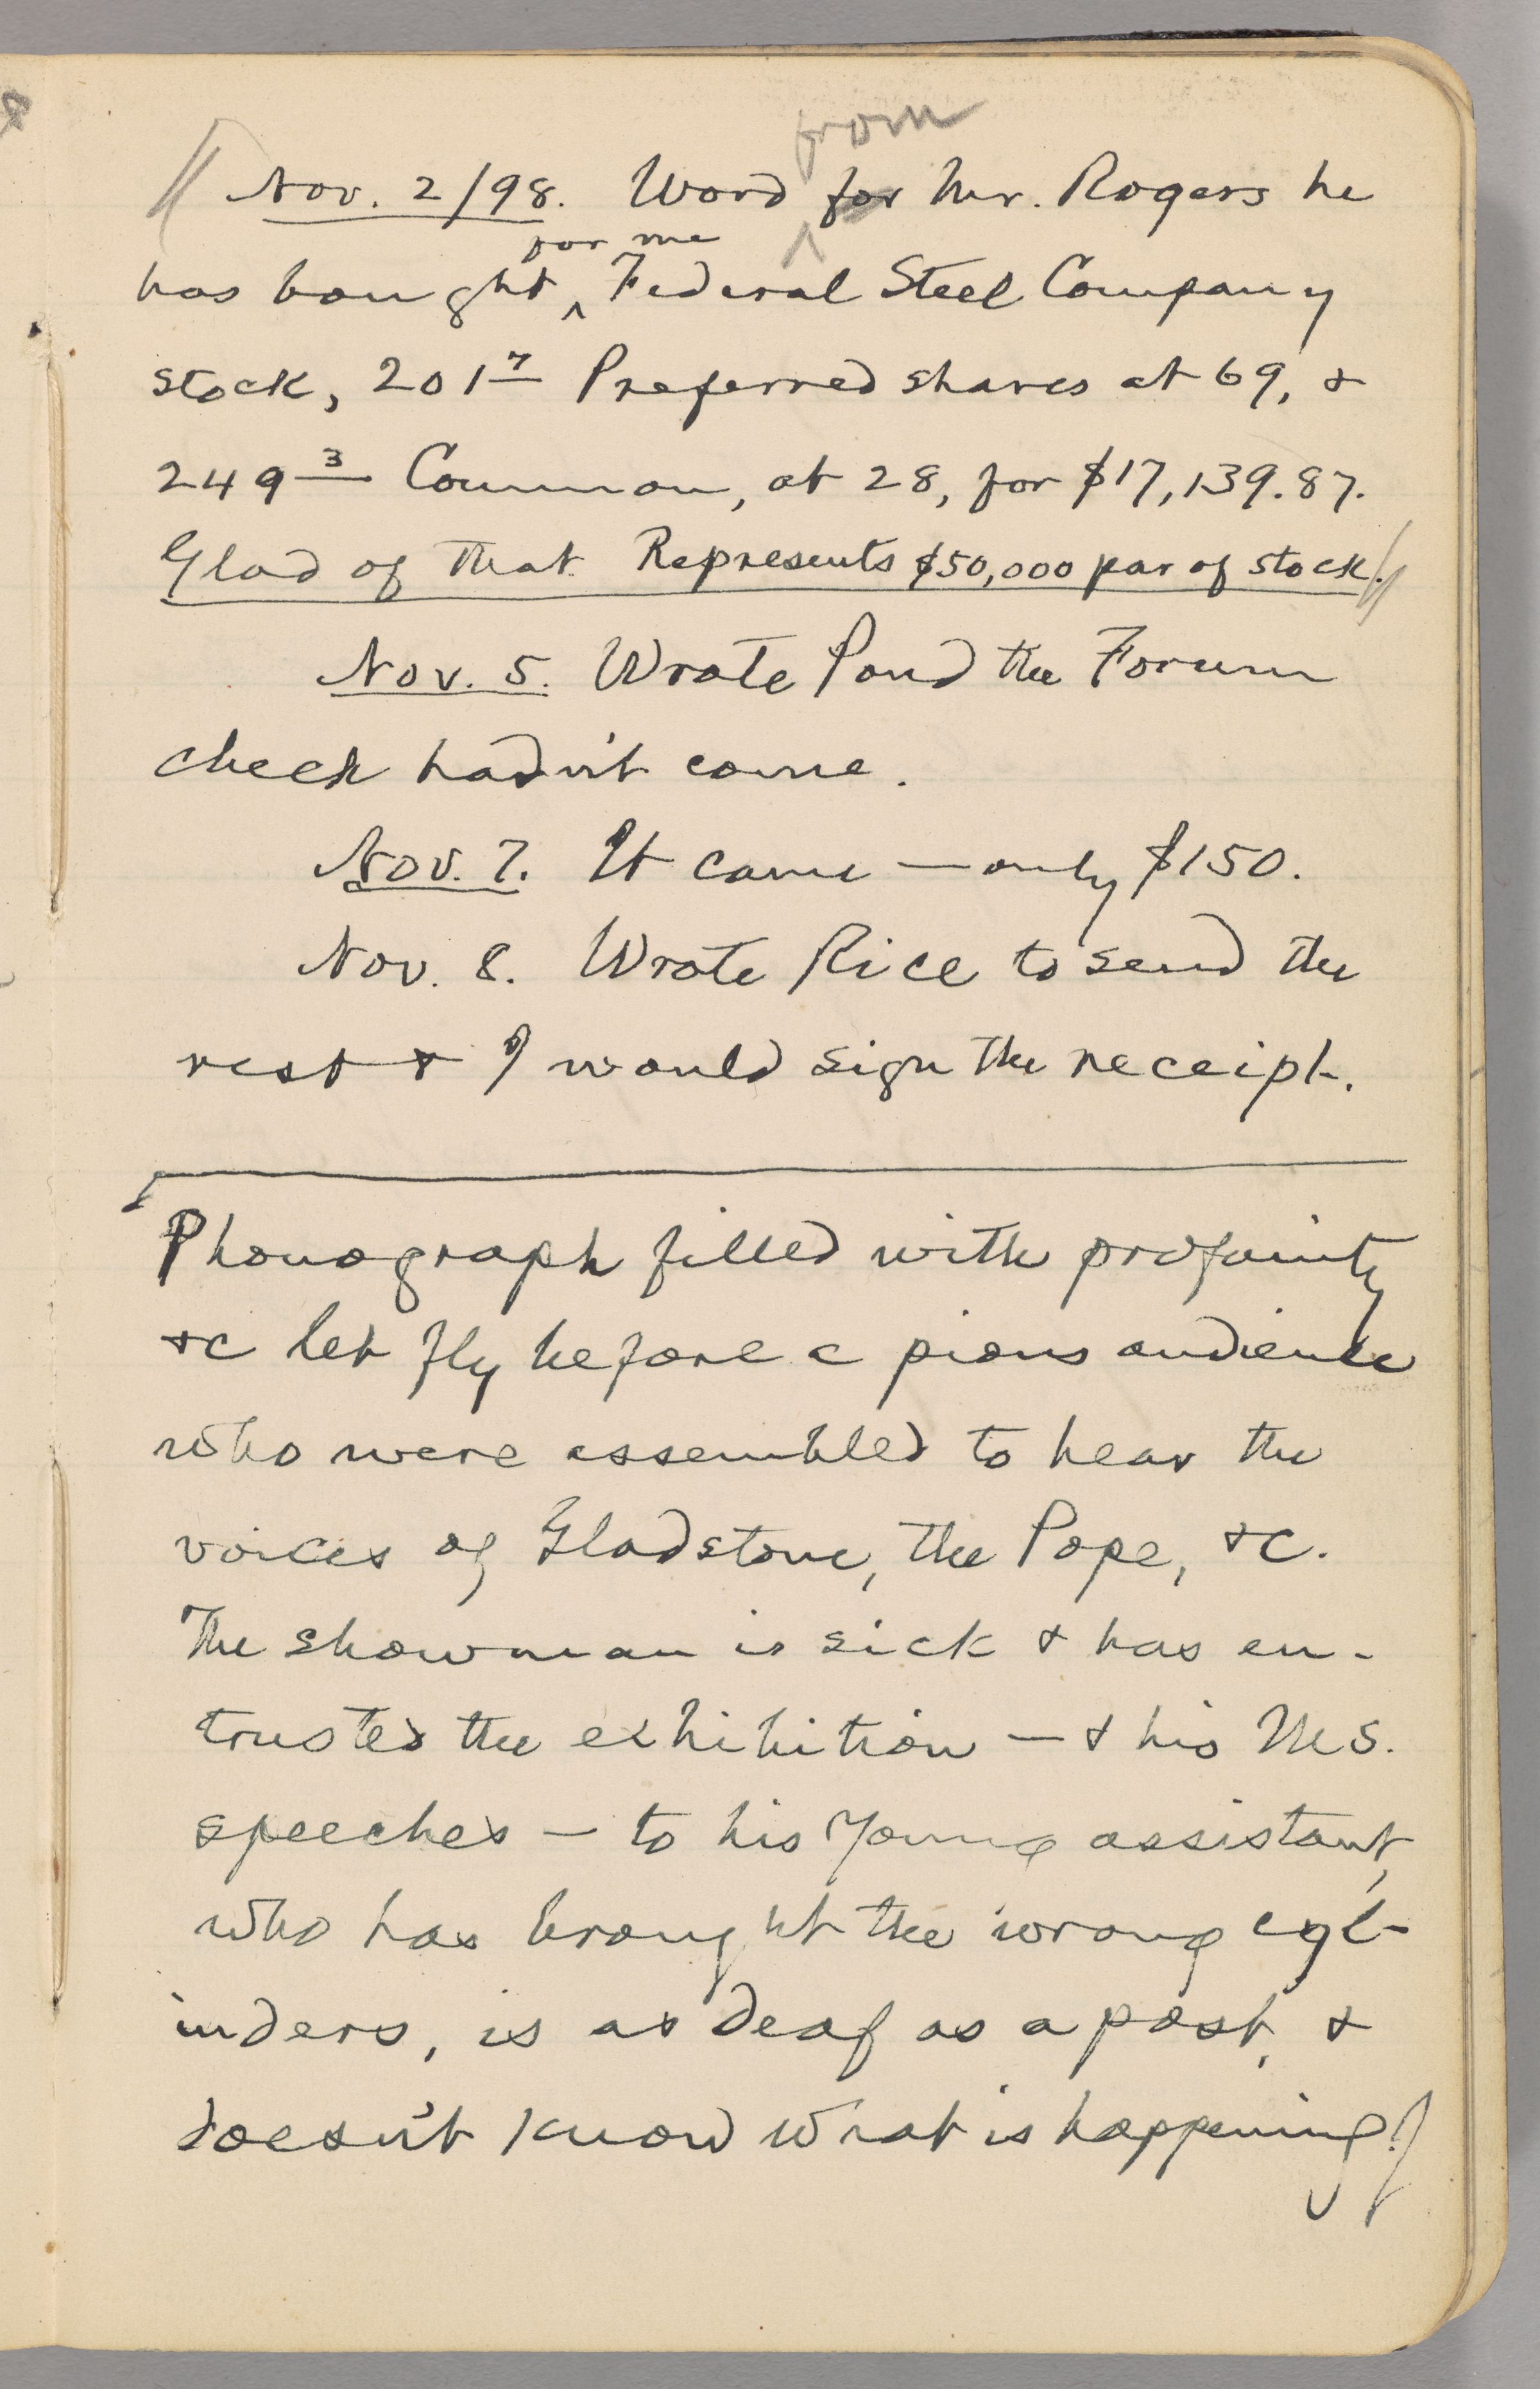 from
Nov. 2/98. Word for Mr. Rogers he
for me
has bought ^ Federal Steel Company
stock, 201 7 Preferred shares at 69, &
249 3 Common, at 28, for $17,139.87.
Glad of that. Represents $50,000 par of stock.
Nov. 5. Wrote Pond the Forum
check hadn't come.
Nov. 7. It came — only $150.
Nov. 8. Wrote Rice to send the
rest & I would sign the receipt.
Phonograph filled with profanity
&c let fly before a pious audience
who were assembled to hear the
voices of Gladstone, the Pope, &c.
The showman is sick & has en-
trusted the exhibition — & his MS.
speeches — to his young assistant,
who has brought the wrong cyl-
inders, is as deaf as a post, &
doesn't know what is happening.